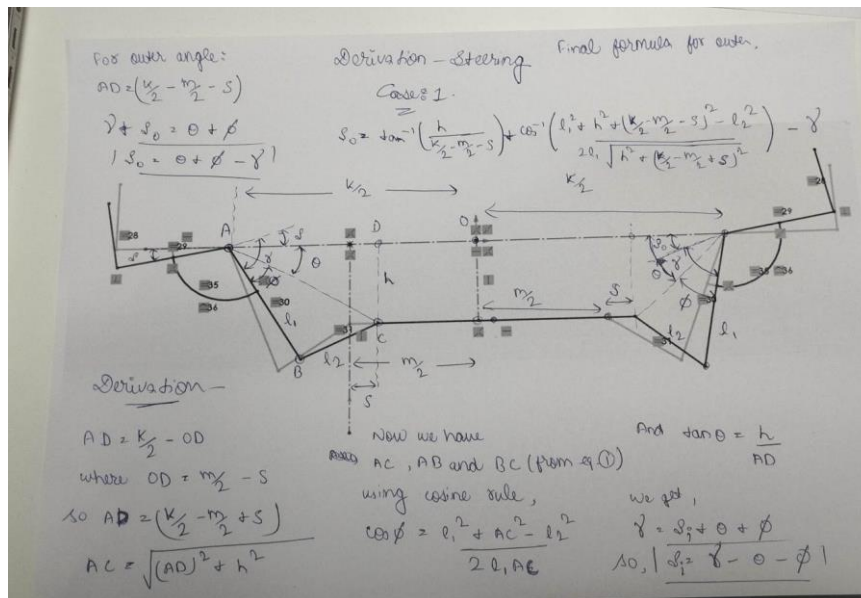 For outer angle:
AD = (K/2 - m/2 - S)
γ + δo = θ + φ
| δo = θ + φ - γ |
Derivation - Steering
Case: 1.
Final formula for outer.
δo = tan⁻¹ (h / (K/2 - m/2 - S)) + cos⁻¹ ((l1² + h² + (K/2 - m/2 - S)² - l2²) / (2l1 √(h² + (K/2 - m/2 + S)²))) - γ
K/2
K/2
A
D
O
S
γ
θ
φ
h
l1
B
l2
C
m/2
S
m/2
S
δo
θ
γ
φ
l2
l1
28
29
35
36
30
31
28
29
35
36
31
Derivation -
AD = K/2 - OD
where OD = m/2 - S
so AD = (K/2 - m/2 + S)
AC = √((AD)² + h²)
Now we have
AC, AB and BC (from eq. ①)
using cosine rule,
cos φ = (l1² + AC² - l2²) / (2 l1 AC)
And tan θ = h / AD
we get,
γ = δi + θ + φ
so, | δi = γ - θ - φ |